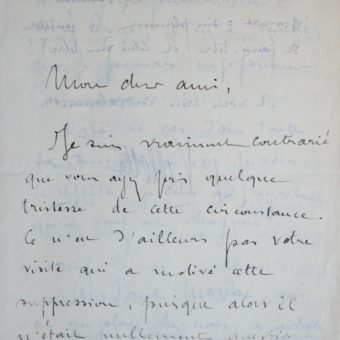 Mon cher ami,
Je suis vraiment contrarié
que vous ayez pris quelque
tristesse de cette circonstance.
Ce n'est d'ailleurs pas votre
visite qui a motivé cette
suppression, puisque alors il
n'était nullement question